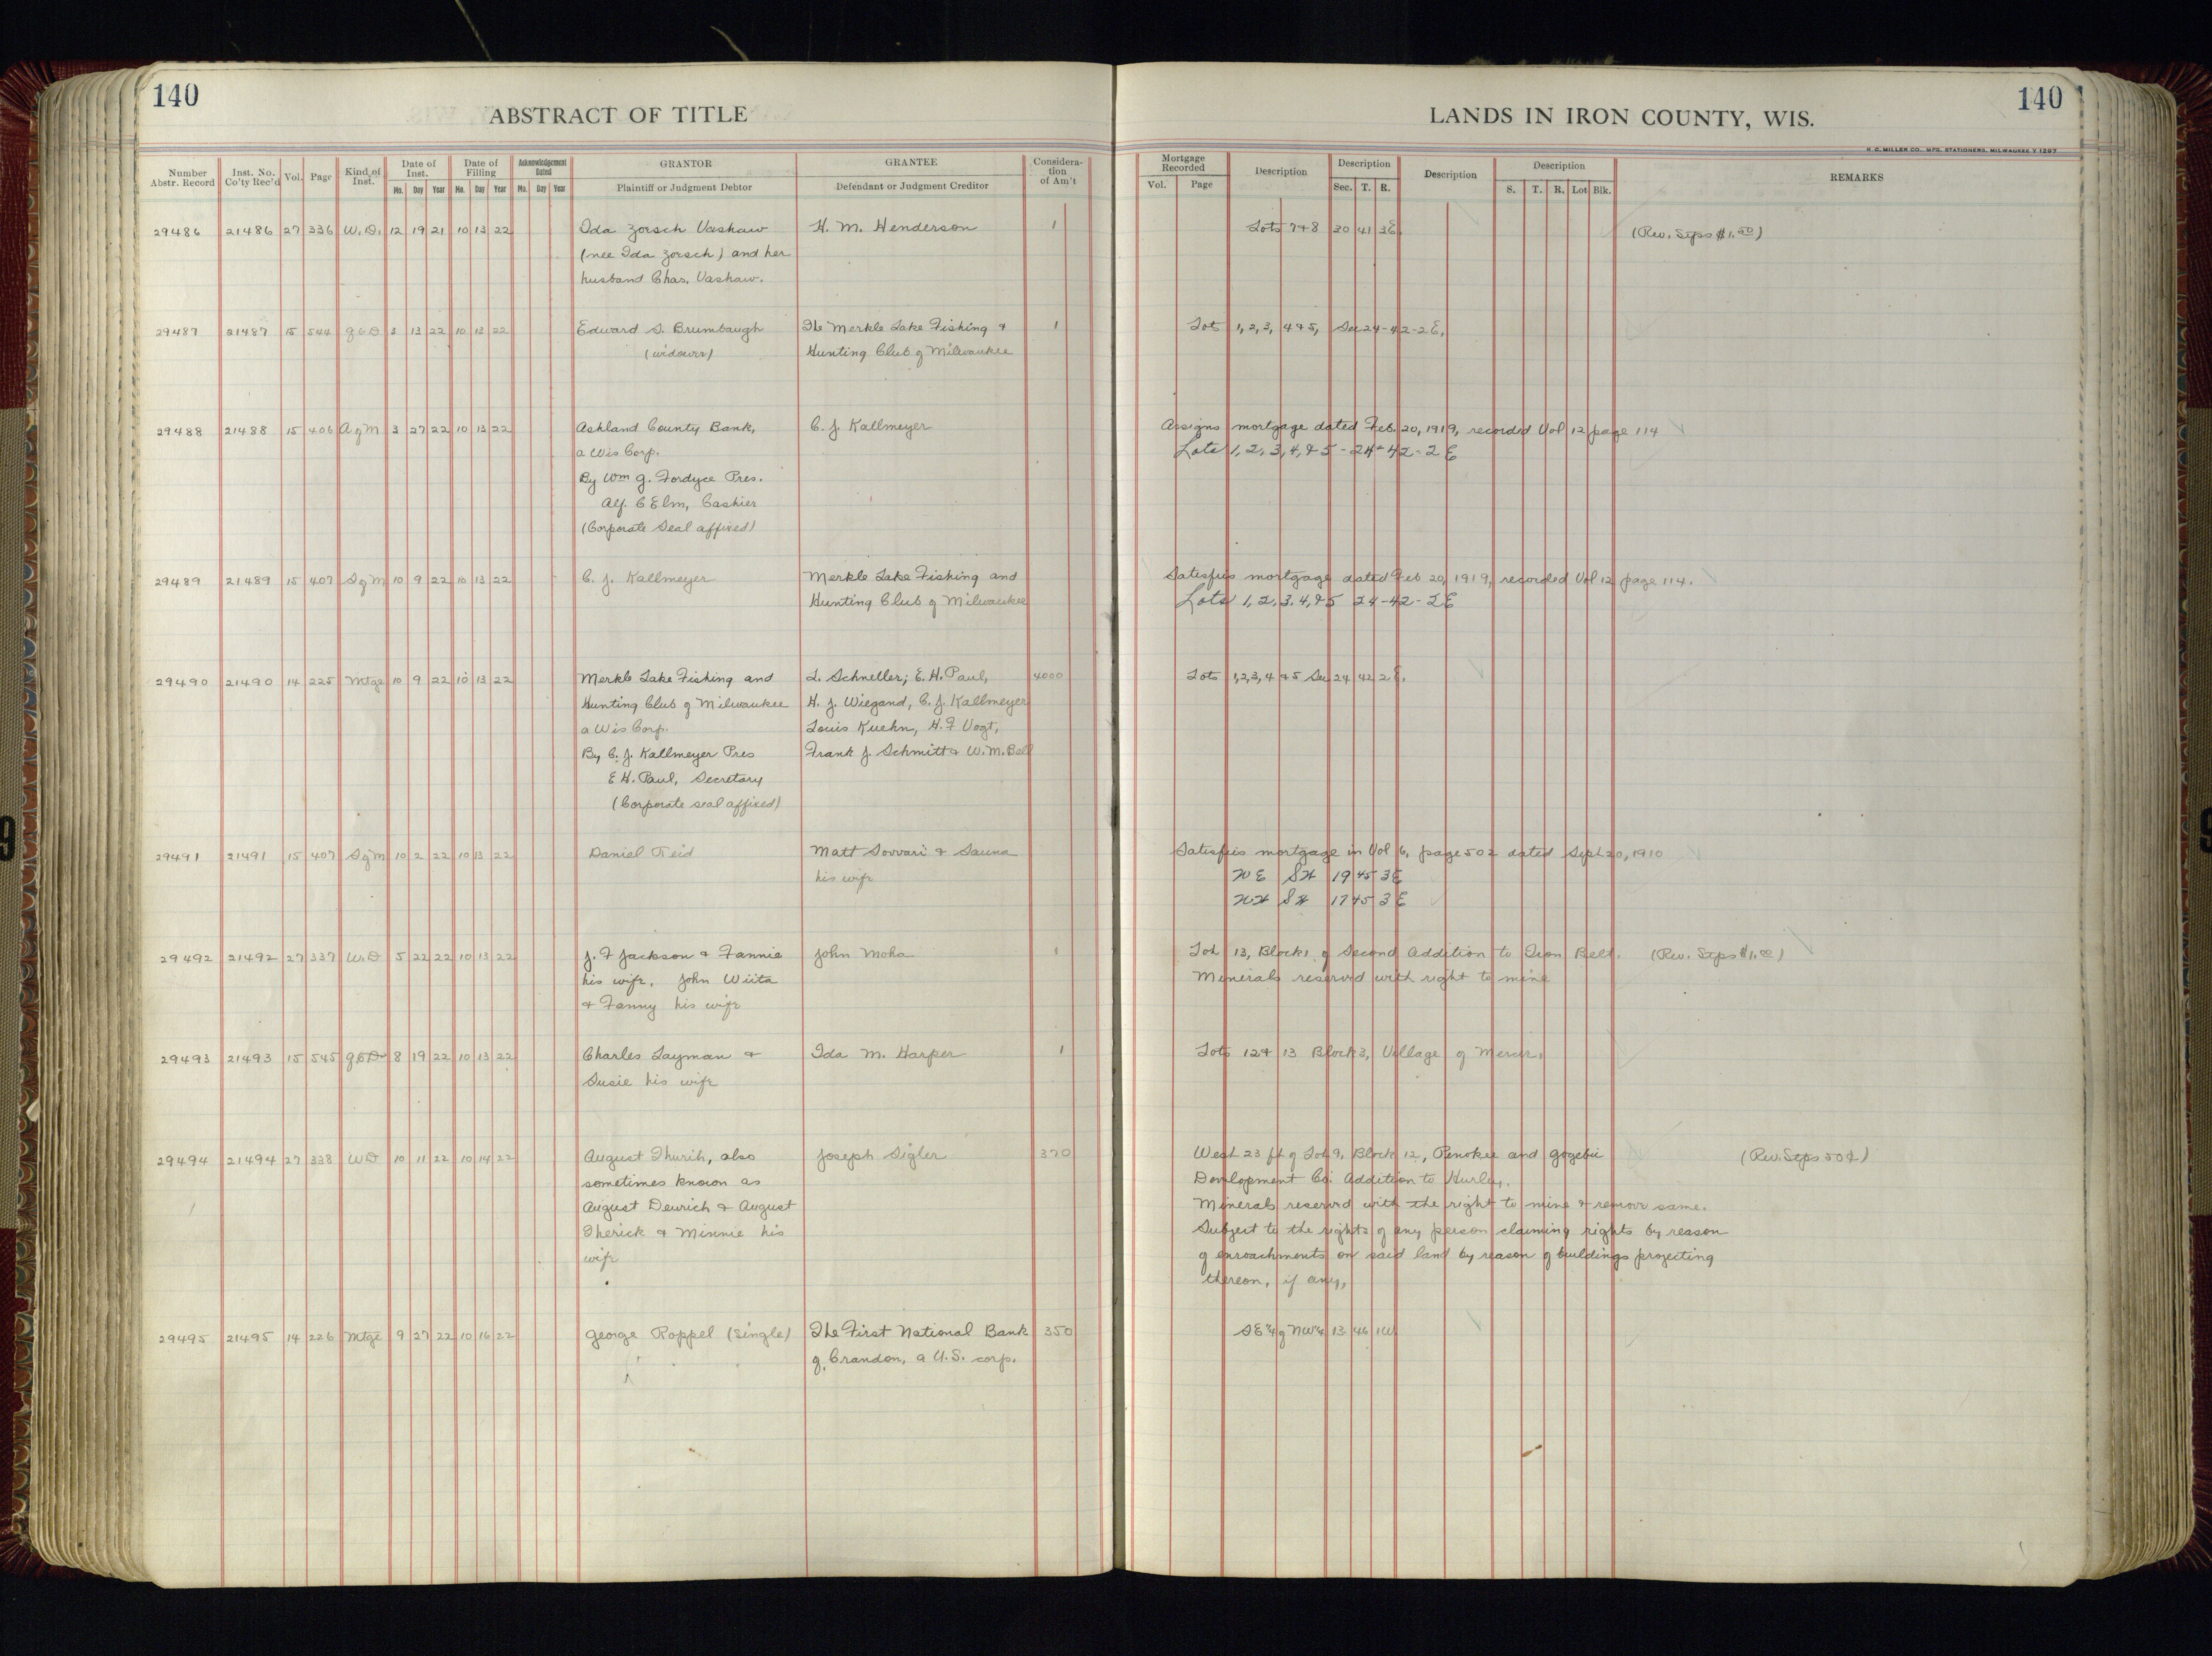 140
ABSTRACT OF TITLE
LANDS IN IRON COUNTY, WIS.
140
H. C. MILLER CO., MFG. STATIONERS, MILWAUKEE Y 1297
Number Abstr. Record | Inst. No. Co'ty Rec'd | Vol. | Page | Kind of Inst. | Date of Inst. Mo. Day Year | Date of Filling Mo. Day Year | Acknowledgement Dated Mo. Day Year | GRANTOR Plaintiff or Judgment Debtor | GRANTEE Defendant or Judgment Creditor | Considera-tion of Am't | Mortgage Recorded Vol. Page | Description | Description Sec. T. R. | Description | Description S. T. R. Lot Blk. | REMARKS
29486 21486 27 336 W.D. 12 19 21 10 13 22 Ida Zorsch Vashaw H. M. Henderson 1 Lots 7+8 30 41 3E. (Rev. Stps $1.50)
(nee Ida Zorsch) and her
husband Chas. Vashaw.
29487 21487 15 544 QCD 3 13 22 10 13 22 Edward S. Brumbaugh The Merkle Lake Fishing + 1 Lots 1, 2, 3, 4+5, Sec 24-42-2E.
(widower) Hunting Club of Milwaukee
29488 21488 15 406 A of M 3 27 22 10 13 22 Ashland County Bank, C. J. Kallmeyer Assigns mortgage dated Feb. 20, 1919, recorded Vol 12 page 114
a Wis Corp. Lots 1, 2, 3, 4, & 5 - 24-42-2E
By Wm G. Fordyce Pres.
Alf. C Elm, Cashier
(Corporate Seal affixed)
29489 21489 15 407 S of M 10 9 22 10 13 22 C. J. Kallmeyer Merkle Lake Fishing and Satisfies mortgage dated Feb 20, 1919, recorded Vol 12 page 114.
Hunting Club of Milwaukee Lots 1, 2, 3, 4, & 5 24-42-2E
29490 21490 14 225 Mtge 10 9 22 10 13 22 Merkle Lake Fishing and L. Schneller; E. H. Paul, 4000 Lots 1,2,3, 4 +5 Sec 24 42 2E.
Hunting Club of Milwaukee H. J. Wiegand, C. J. Kallmeyer
a Wis Corp. Louis Kuehn, H. F Vogt,
By C. J. Kallmeyer Pres Frank J. Schmitt + W. M. Bell
E H. Paul, Secretary
(Corporate seal affixed)
29491 21491 15 407 S of M 10 2 22 10 13 22 Daniel Reid Matt Sovvari + Sauna Satisfies mortgage in Vol 6, page 502 dated Sept 20, 1910
his wife NE SW 19 45 3E
NW SW 17 45 3E
29492 21492 27 337 W.D 5 22 22 10 13 22 J. F Jackson + Fannie John Moha 1 Lot 13, Block 1 of Second Addition to Iron Belt. (Rev. Stps $1.00)
his wife, John Wiita Minerals reserved with right to mine
+ Fanny his wife
29493 21493 15 545 QCD 8 19 22 10 13 22 Charles Layman + Ida M. Harper 1 Lots 12+ 13 Block 3, Village of Mercer.
Susie his wife
29494 21494 27 338 WD 10 11 22 10 14 22 August Thurih, also Joseph Sigler 370 West 23 ft of Lot 9, Block 12, Penokee and Gogebic (Rev. Stps 50¢)
sometimes known as Development Co. Addition to Hurley.
August Deurich + August Minerals reserved with the right to mine + remove same.
Therick + Minnie his Subject to the rights of any person claiming rights by reason
wife of enroachments on said land by reason of buildings projecting
thereon, if any,
29495 21495 14 226 Mtge 9 27 22 10 16 22 George Roppel (single) The First National Bank 350 SE¼ of NW¼ 13 46 1W
of Crandon, a U.S. corp.